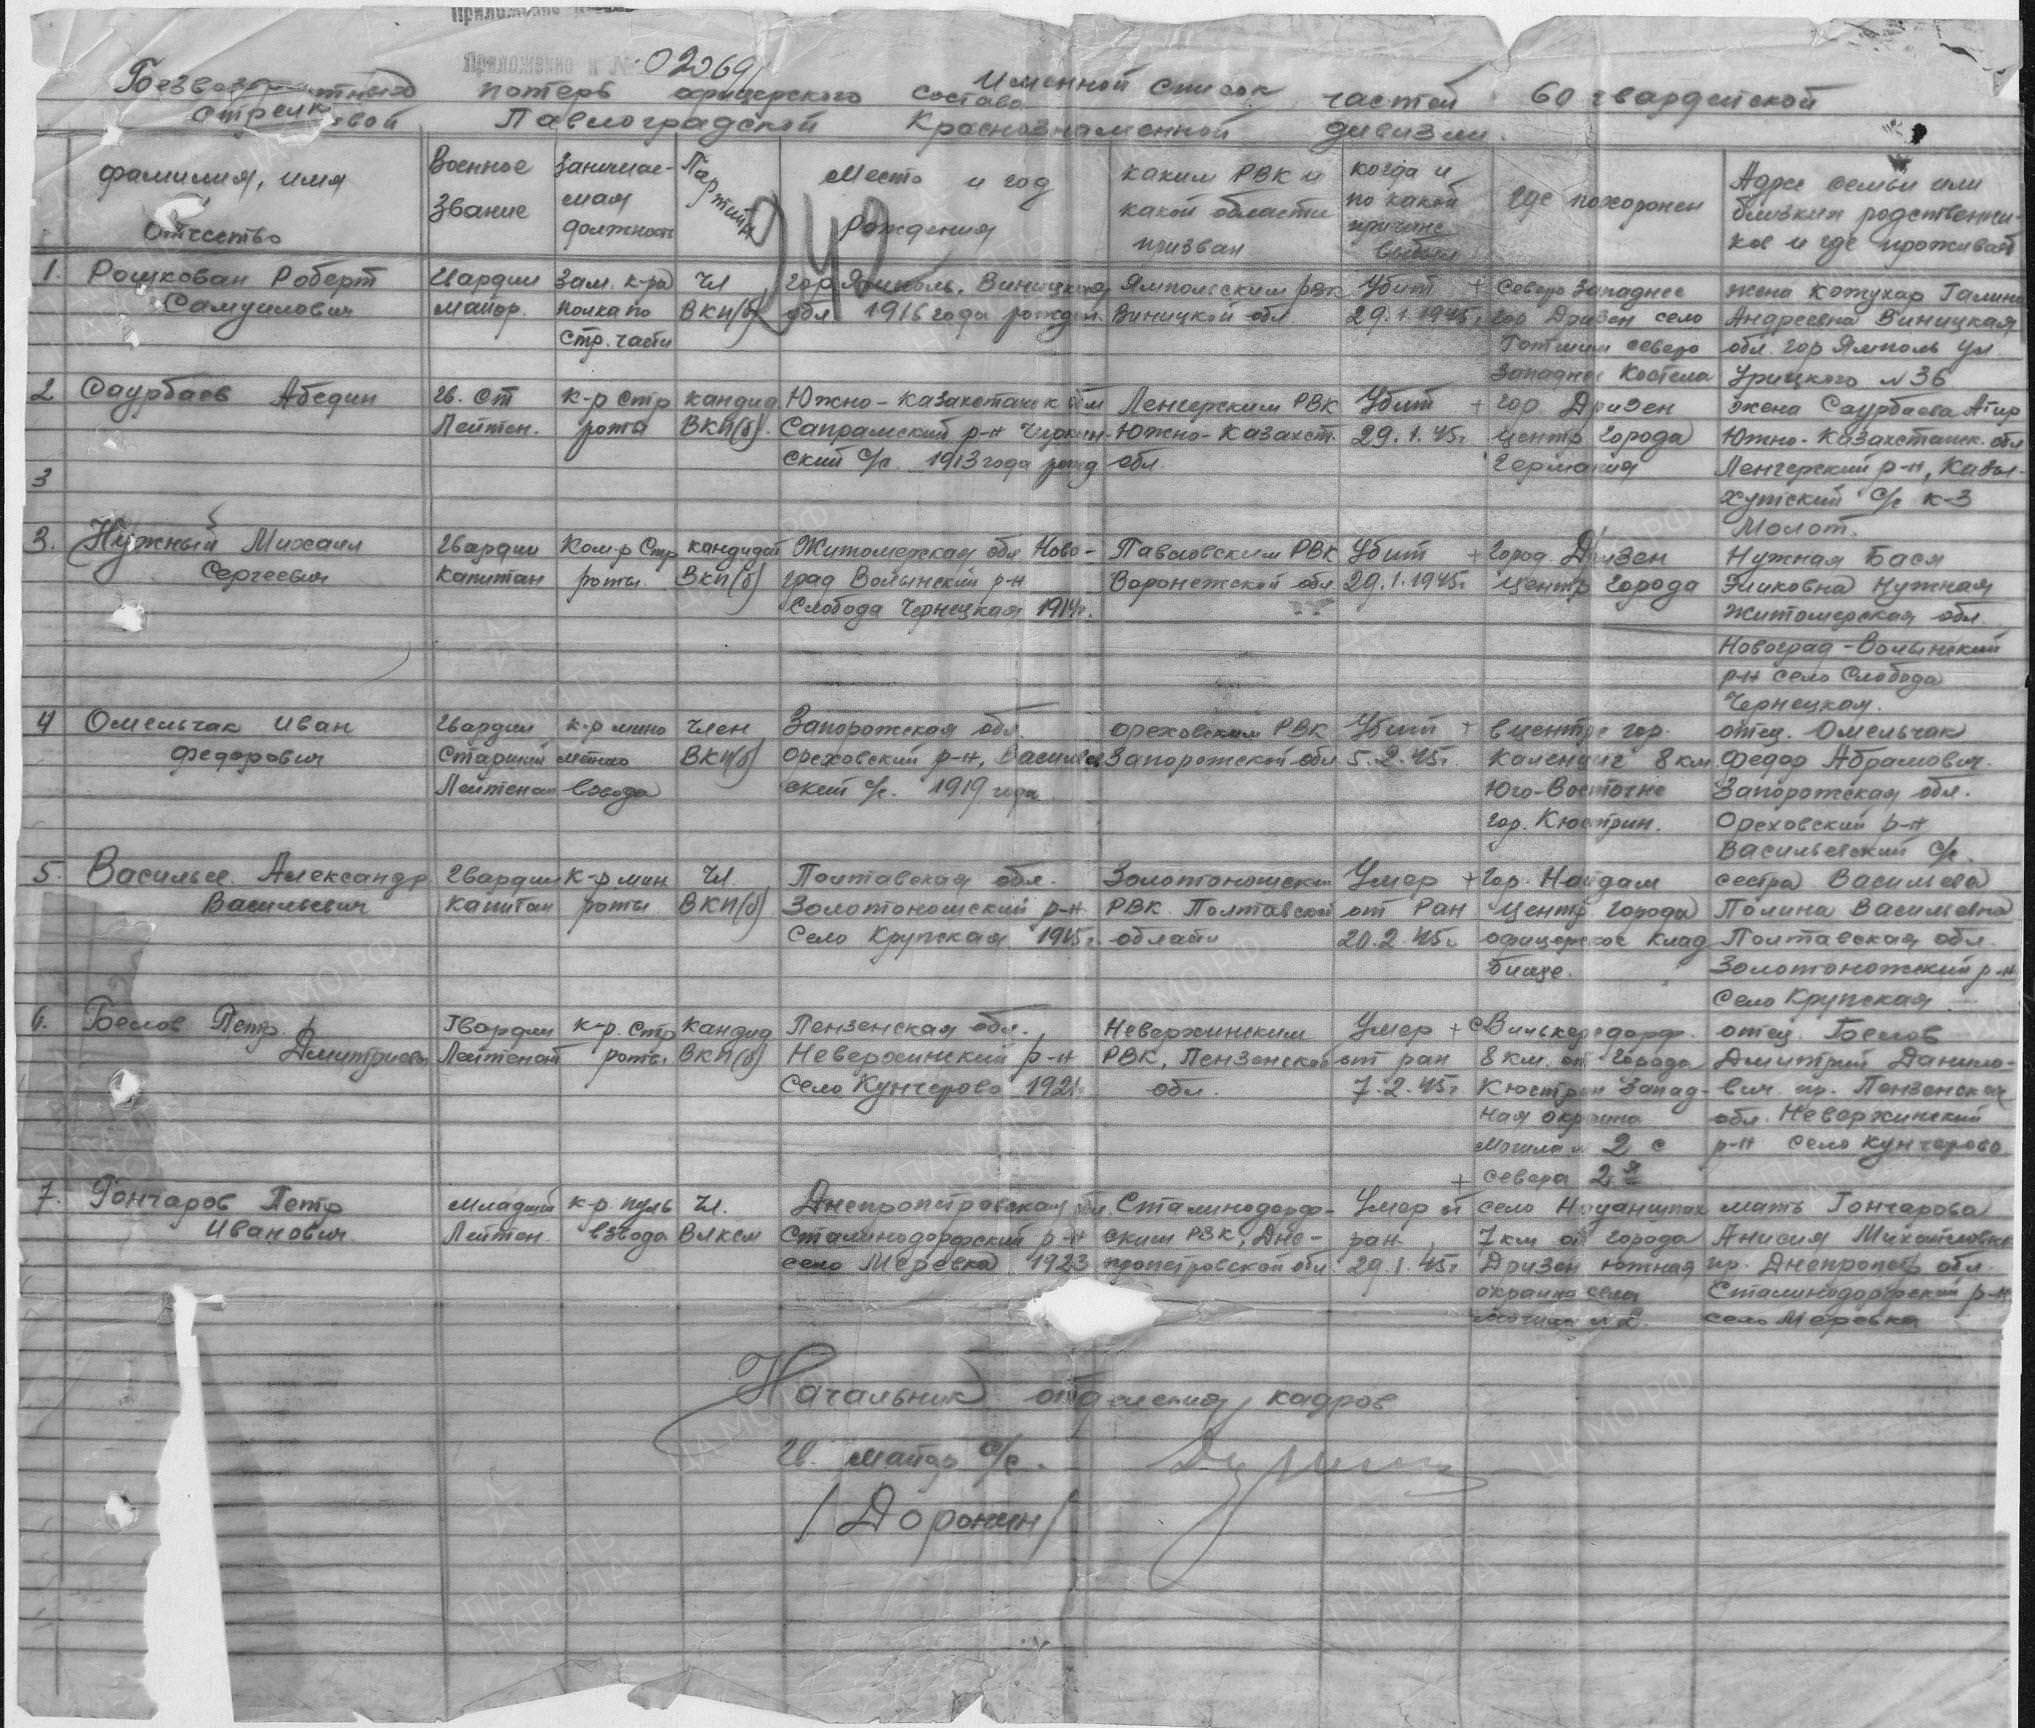 Приложение к
Приложение к № 02069
Именной список
Безвозвратных потерь офицерского состава частей 60 гвардейской
стрелковой Павлоградской Краснознаменной дивизии.
фамилия, имя Отчество
Военное Звание
Занимаемая должность
Партийн
Место и год Рождения
каким РВК и какой области призван
когда и по какой причине выбыл
где похоронен
Адрес семьи или близких родственников и где проживает
240
1. Рошкован Роберт Гвардии Зам. к-ра Чл гор Ямполь, Виницкой Ямпольским РВК Убит + Северо Западнее жена Кожухар Галина
Самуилович Майор. полка по ВКП(б) обл 1916 года рожден. Виницкой обл 29.1.1945г гор Дризен село Андреевна Виницкая
стр. части северо обл. гор Ямполь ул.
Западнее Костела Урицкого №36
2 Саурбаев Абедин Гв. Ст к-р стр кандид Южно-Казахстанск обл Ленгерским РВК Убит + гор Дризен жена Саурбаева
Лейтен. роты ВКП(б). р-н Южно-Казахст. 29.1.45г центр города Южно-Казахстанск. обл
ский с/с. 1913 года рожд обл. Германия Ленгерский р-н,
3 с/с к-з
Молот.
3. Нужный Михаил Гвардии Ком-р Стр кандидат Житомерская обл Ново- Павловским РВК Убит + Город. Дризен Нужная Бася
Сергеевич Капитан роты. ВКП(б) град Волынский р-н Воронежской обл 29.1.1945г. центр города Нужная
Слобода Чернецкая 1914г. Житомерская обл.
Новоград-Волынский
р-н село Слобода
Чернецкая.
4 Омельчак Иван Гвардии к-р мино Член Запорожская обл. Ореховским РВК Убит + в центре гор. отец. Омельчак
Федорович Старший ВКП(б) Ореховский р-н, Запорожской обл 5.2.45г. 8 км. Федор Абрамович.
Лейтенант взвода ский с/с. 1919 года Юго-Восточне Запорожская обл.
гор. Кюстрин. Ореховский р-н
Васильевский с/с.
5. Васильев Александр Гвардии К-р мин Чл. Полтавская обл. Золотоношским Умер + гор. Найдам сестра Васильева
Васильевич Капитан роты ВКП(б) Золотоношский р-н РВК Полтавской от Ран центр города Полина Васильевна
село Крупская 1915г. области 20.2.45г. офицерское клад Полтавская обл.
бище. Золотоножский р-н
село Крупская
6. Белов Петр Гвардии к-р. стр кандид Пензенская обл. Неверкинским Умер + отец. Белов
Дмитриевич Лейтенант роты. ВКП(б) Неверкинский р-н РВК, Пензенской от ран 8 км. от города Дмитрий Данило-
село Кунчерово 1921г. обл. 7.2.45г Кюстрин Запад- вич. пр. Пензенская
ная окраина обл. Неверкинский
могила № 2 с р-н село Кунчерово
+ севера 2я
7. Гончаров Петр Младший к-р. пуль Чл. Днепропетровская обл. Сталиндорф- Умер от село мать Гончарова
Иванович Лейтен. взвода ВЛКСМ Сталиндорфский р-н ским РВК, Дне- ран 7 км от города Анисия Михайловна
село Меревка 1923 пропетровской обл. 29.1.45г Дризен южная пр. Днепропетр обл.
окраина села Сталиндорфский р-н
могила № 2. село Меревка
Начальник отделения кадров
гв. майор а/с.
/Доронин/